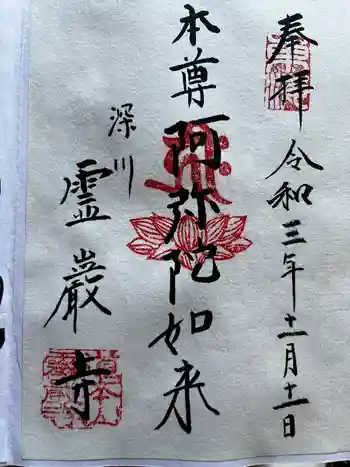 奉拝
令和三年十一月十一日
本尊
阿弥陀如来
深川
霊巌寺